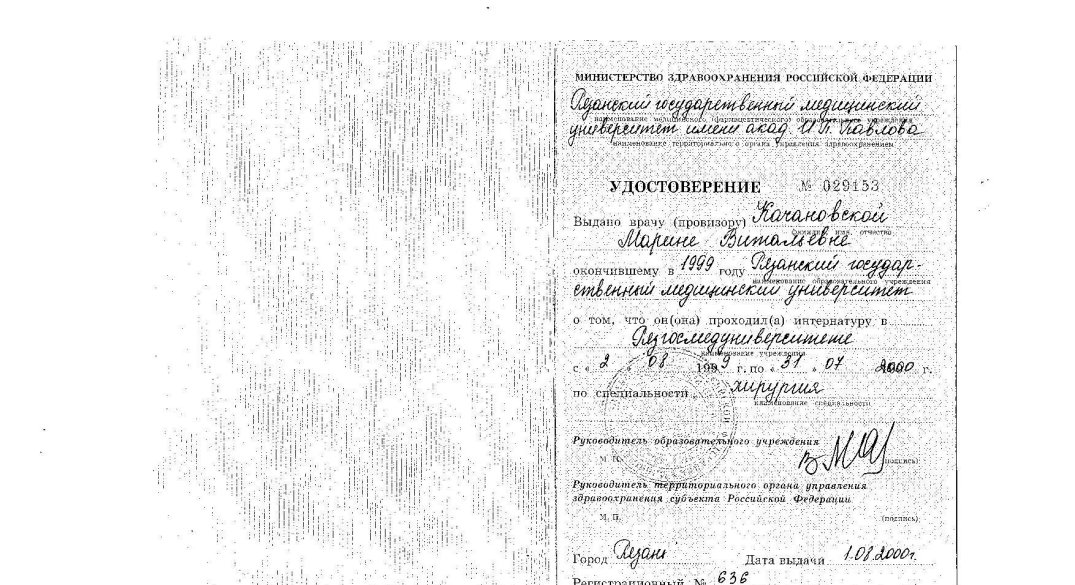 МИНИСТЕРСТВО ЗДРАВООХРАНЕНИЯ РОССИЙСКОЙ ФЕДЕРАЦИИ
Рязанский государственный медицинский
наименование медицинского (фармацевтического) образовательного учреждения
университет имени акад. И П. Павлова
наименование территориального органа управления здравоохранением
УДОСТОВЕРЕНИЕ № 029153
Выдано врачу (провизору) Качановской
фамилия, имя, отчество
Марине Витальевне
окончившему в 1999 году Рязанский государ-
наименование образовательного учреждения
ственный медицинский университет
о том, что он(она) проходил(а) интернатуру в
Рязгосмедуниверситете
наименование учреждения
с « 2 » 08 1999 г. по « 31 » 07 2000 г.
по специальности хирургия
наименование специальности
Руководитель образовательного учреждения
М. П. (подпись)
Руководитель территориального органа управления
здравоохранения субъекта Российской Федерации
М. П. (подпись)
Город Рязань Дата выдачи 1.08.2000г.
Регистрационный № 636